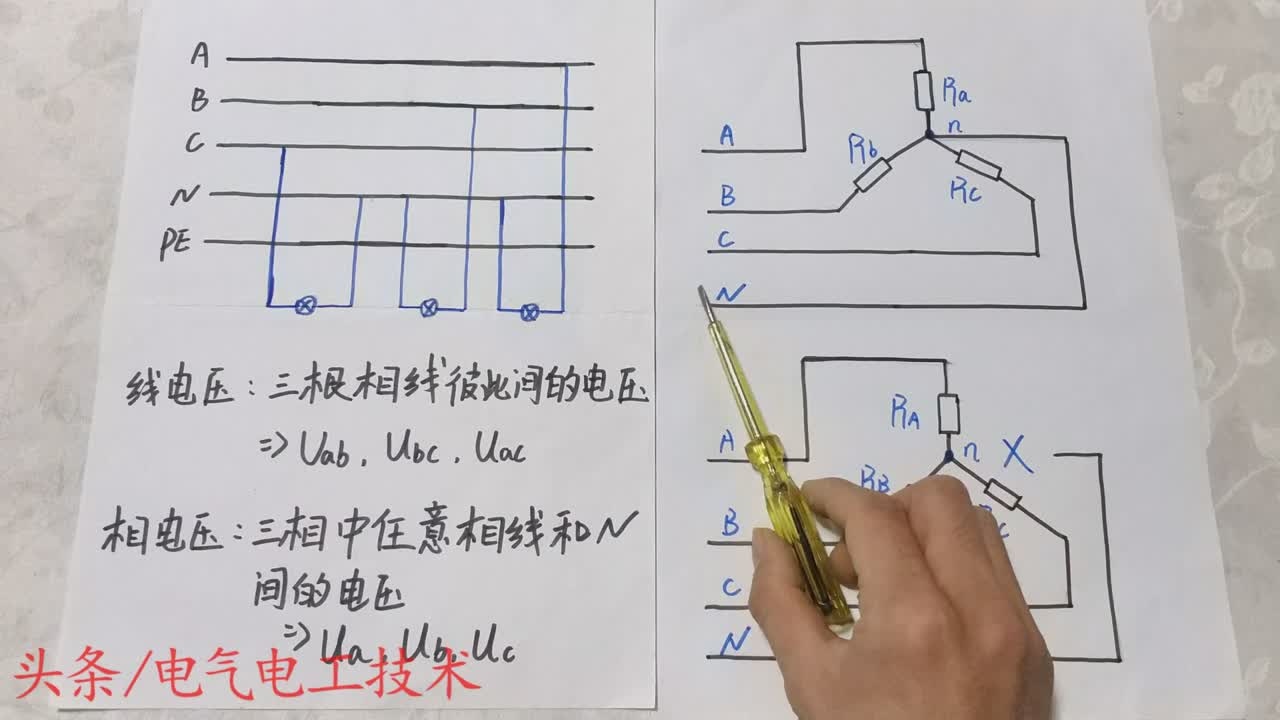 A
B
C
N
PE
线电压：三根相线彼此间的电压
=> Uab, Ubc, Uac
相电压：三相中任意相线和N
间的电压
=> Ua, Ub, Uc
头条/电气电工技术
A
B
C
N
Ra
Rb
n
Rc
A
B
C
N
RA
RB
n X